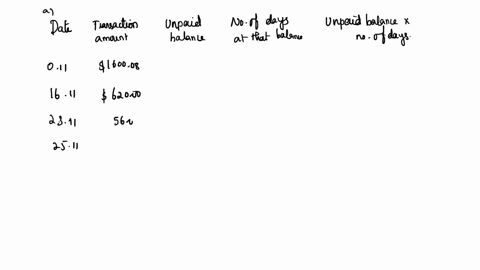 a)
Date Transaction amount Unpaid balance No. of days at that balance Unpaid balance x no. of days.
0.11 $1600.08
16.11 $620.00
23.11 560
25.11